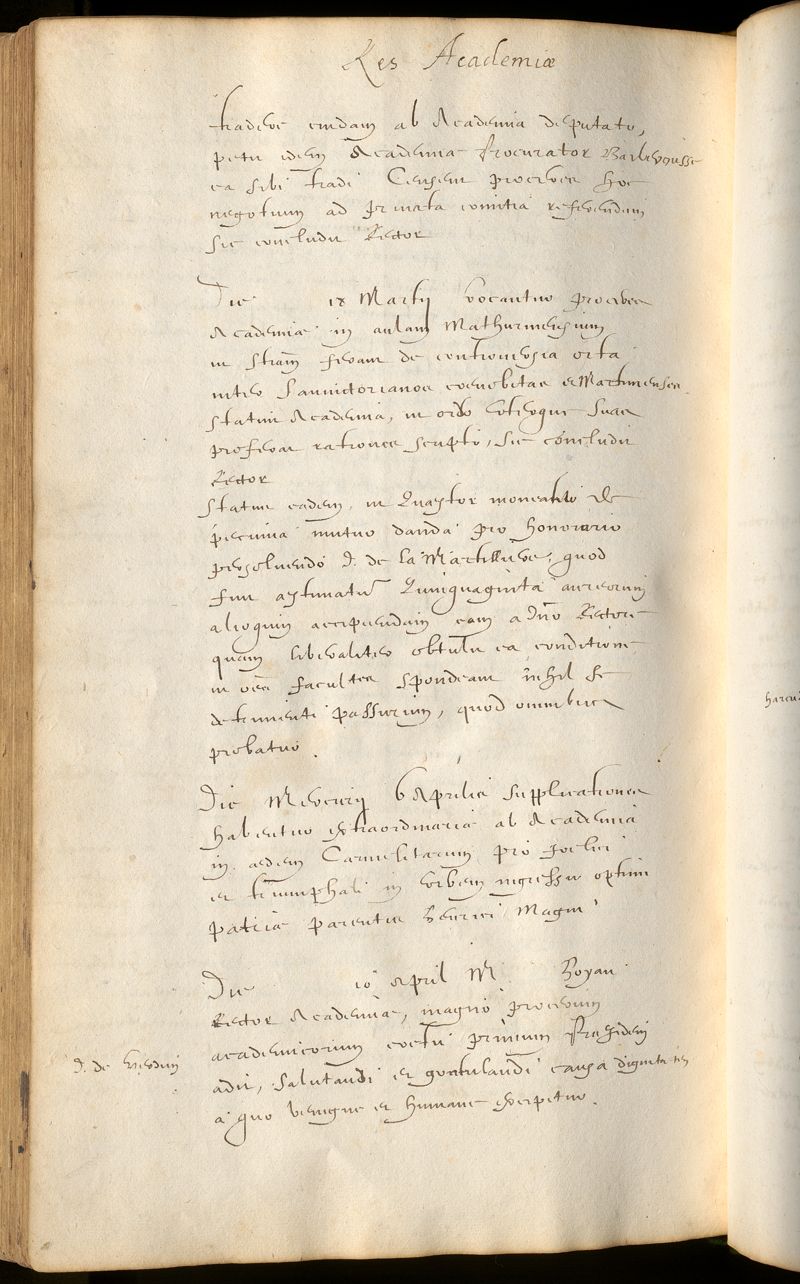 Res Academiæ
tradere cuidam ab Academia deputato,
petit idem Academiae Procurator
ea sibi tradi Censent proceres hoc
negotium ad privata comitia referendum
sic concludit Rector
Die 18 Martij vocantur proceres
Academiæ in aulam Mathurinensium
ut de controversia orta
inter Sanvictorianos coenobitas et
statuit Academia, ut ordo uterque suas
proferat rationes scripto, sic concludit
Rector
Statuit eadem, ut Quæstor de
pecunia mutuo danda pro honorario
persolvendo D. de la quod
fuit æstimatum Quinquaginta aureorum
alioquin accipiendam eam a dno Rectore
quam liberaliter obtulit ea conditione
ut oes facultates spondeant nihil se
detrimenti passurum, quod omnibus
probatur.
Die Mercurij 6 Aprilis supplicationes
habentur extraordinariæ ab Academia
in ædem Carmelitarum pro foelici
et triumphali in urbem ingressu optimi
patriæ parentis Henrici Magni
Die 10 April M. Boyan
Rector Academiæ, magno procerum
academicorum coetu primum Præsidem
adit, salutandi et gratulandi causa dignitatem
D. de Verdun
a quo benigne et humane excipitur.